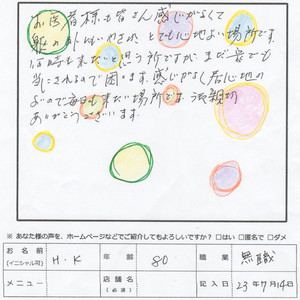 お医者様も皆さん感じがよくて
とても心地よい場所です。
何時も来たいと思う所ですが、まだ
されるので困ります。感じがよく居心地の
よいので毎日も来たい場所です。御親切
ありがとうございます。
※ あなた様の声を、ホームページなどでご紹介してもよろしいですか？ □はい □匿名で □ダメ
お名前 (イニシャル可) H.K 年齢 80 職業 無職
メニュー 店舗名 (必須) 記入日 23年7月14日